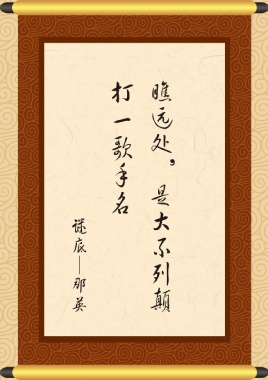 瞧远处，是大不列颠
打一歌手名
谜底—那英